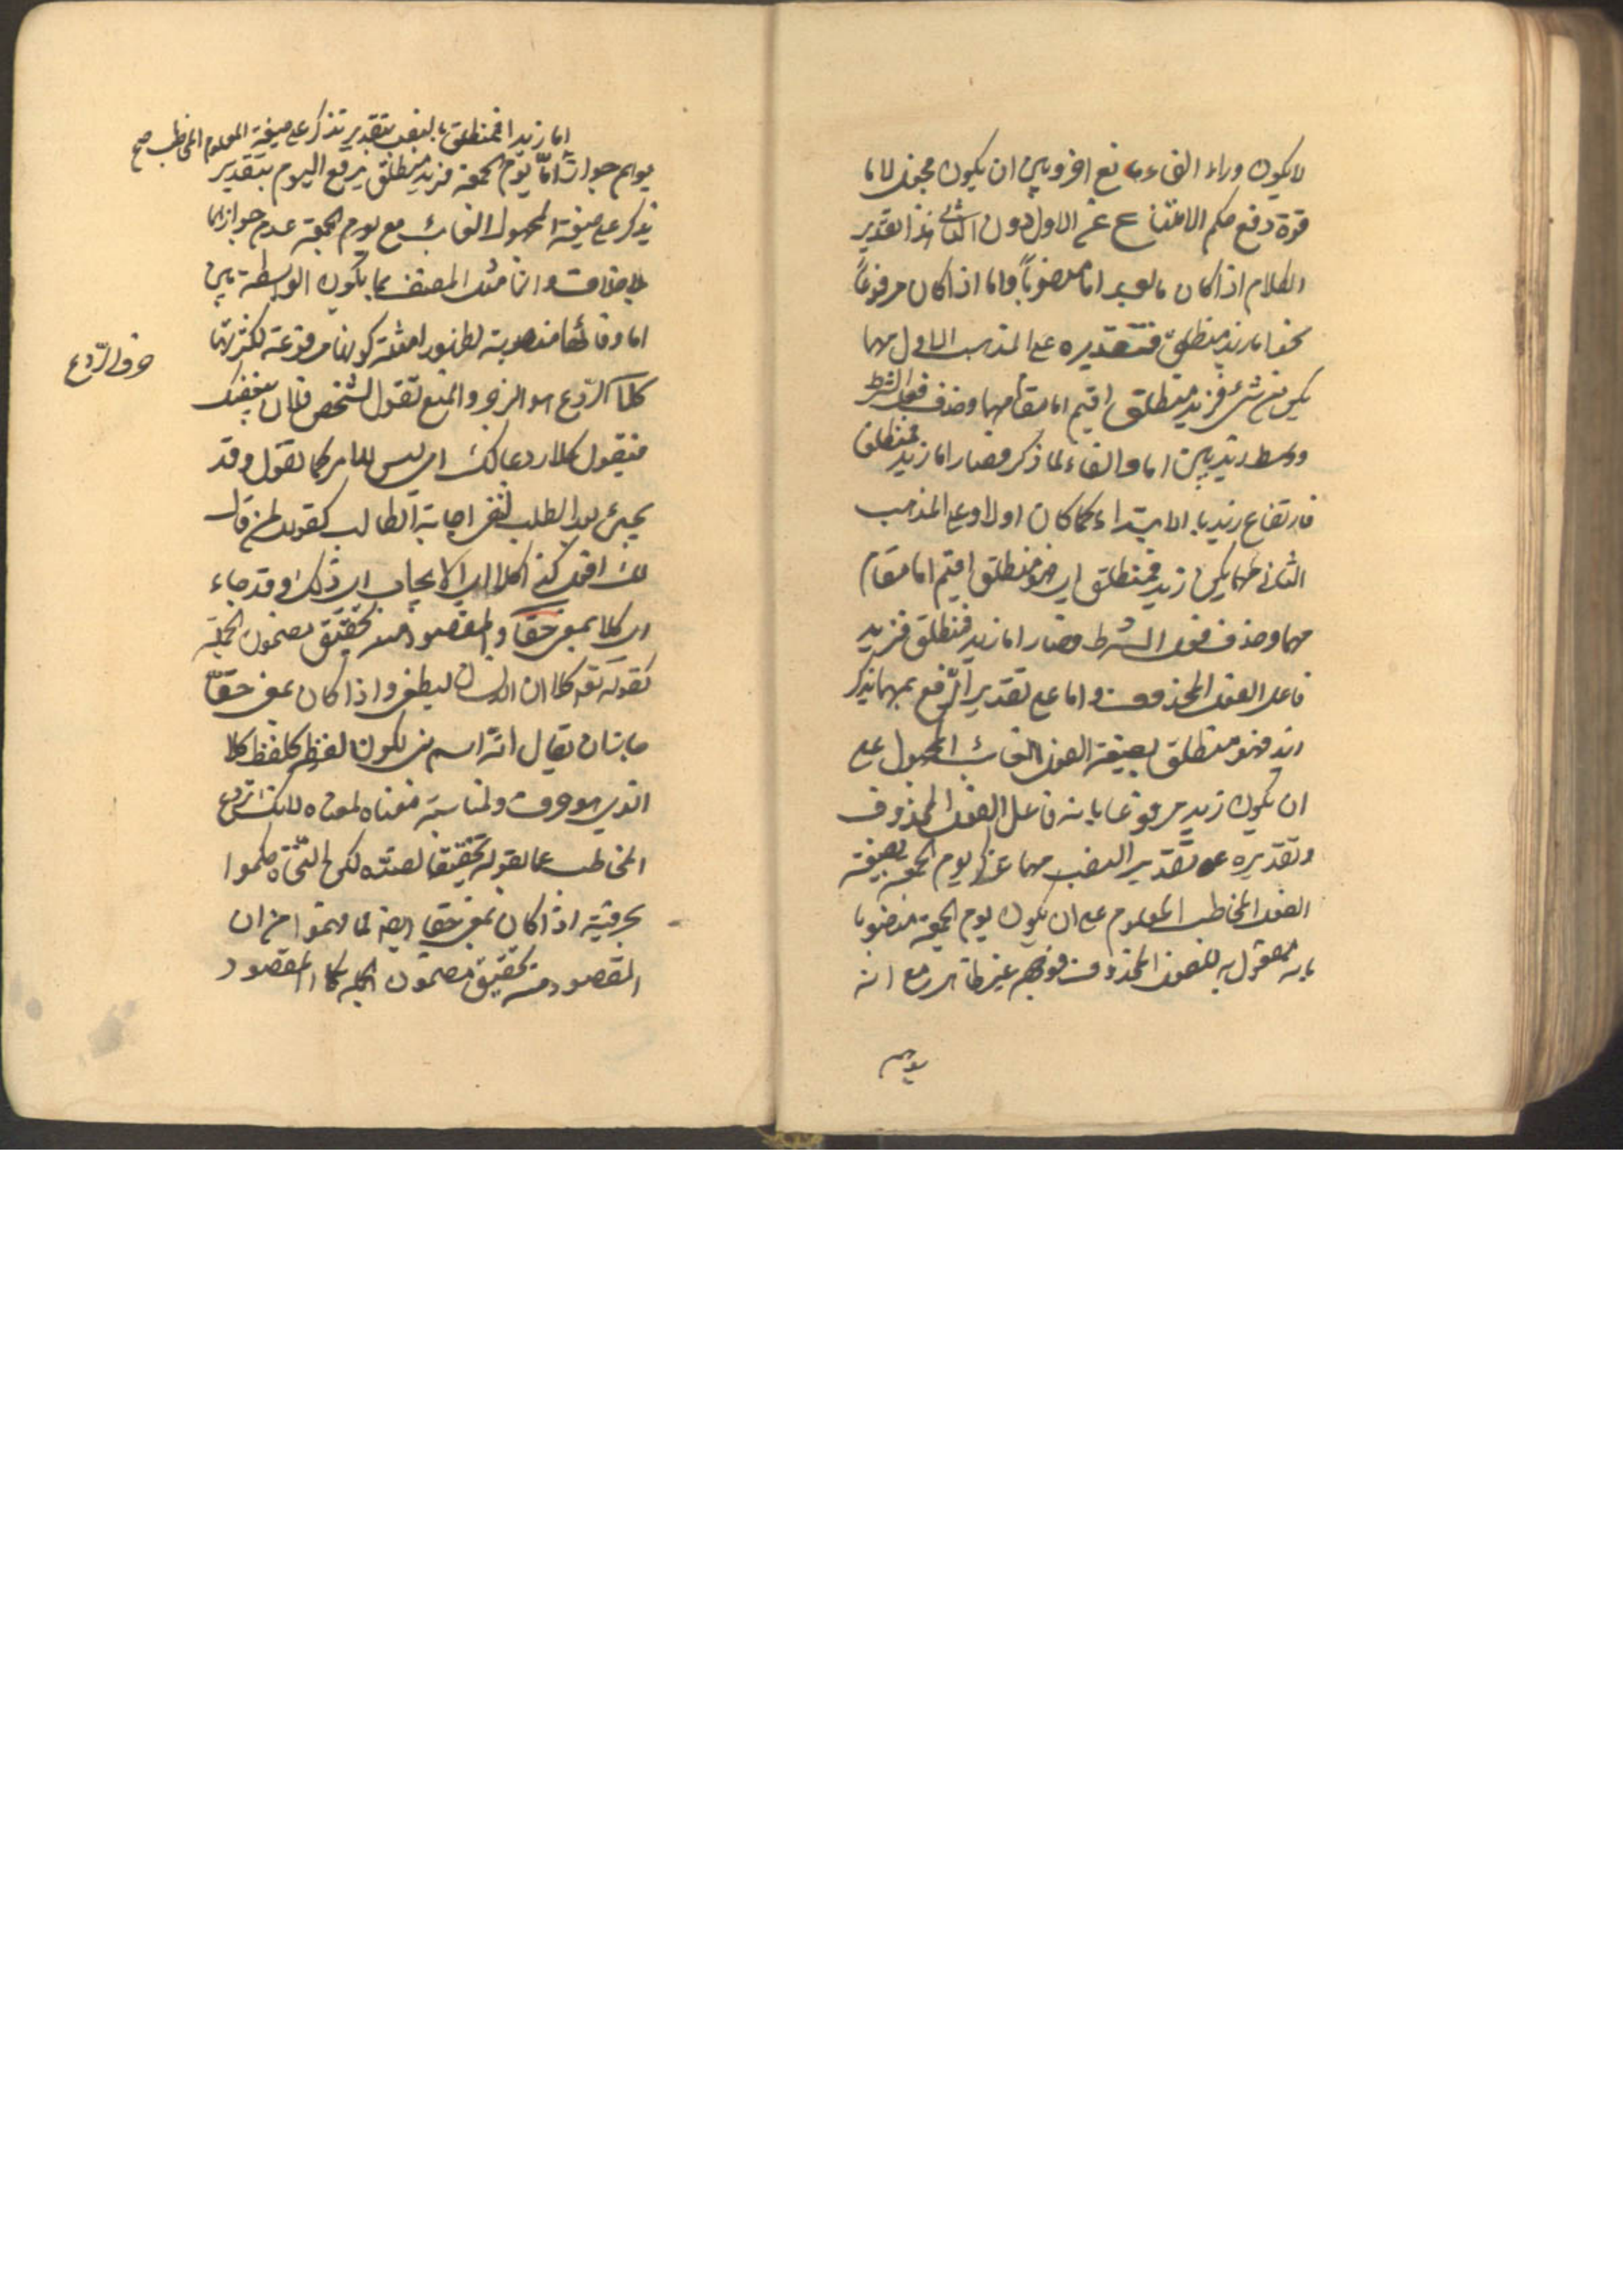 لا يكون وراء الفاء مانع اخر وبين ان يكون فيجعل لاما
قوة دفع حكم الامتناع عن الاول دون الثاني هذا تقدير
الكلام اذا كان ما بعد اما منصوباً واما اذا كان مرفوعاً
نحو اما زيد فمنطلق فتقديره على المذهب الاول مهما
يكن من شئ فزيد منطلق اقيم اما مقام مهما وحذف فعل الشرط
ووسط زيد بين اما والفاء لما ذكر فصار اما زيد فمنطلق
فارتفاع زيد بالابتداء كما كان اولا وعلى المذهب
الثاني مهما يكن زيد فمنطلق اي فهو منطلق اقيم اما مقام
مهما وحذف فعل الشرط وصار اما زيد فمنطلق فزيد
فاعل الفعل المحذوف واما على تقدير الرفع بمهما يذكر
زيد فهو منطلق بصيغة الفعل الغائب المجهول على
ان يكون زيد مرفوعا بانه فاعل الفعل المحذوف
وتقديره على تقدير النصب مهما تذكر يوم الجمعة بصيغة
الفعل المخاطب المعلوم على ان يكون يوم الجمعة منصوبا
بانه مفعول به للفعل المحذوف فوجه غير ظاهر مع انه
يوهم
اما زيدا فمنطلق بالنصب بتقدير تذكر على صيغة المعلوم المخاطب صح
يوهم جواز اما يوم الجمعة فزيد منطلق برفع اليوم بتقدير
يذكر على صيغة المجهول الغائب مع يوم الجمعة عدم جوازها
بلا خلاف وانما مثل المصنف بما يكون الواسطة بين
اما وفائها منصوبة لظهور امثلة كونها مرفوعة لكثرتها
حرف الردع
كلا الردع هو الزجر والمنع تقول لشخص فلان يبغضك
فيقول كلا ردعا لك اي ليس الامر كما تقول وقد
يجئ بعد الطلب لنفي اجابة الطالب كقولك لمن قال
لك افعل كذا كلا اي لا يجاب الى ذلك وقد جاء
اي كلا بمعنى حقا والمقصود منه تحقيق مضمون الجملة
كقوله تعالى كلا ان الانسان ليطغى واذا كان بمعنى حقا
جاز ان يقال انه اسم بني لكون لفظه كلفظ كلا
الذي هو حرف ولمناسبة معناه لمعناه لانك تردع
المخاطب عما يقوله تحقيقا لضده لكن النحاة حكموا
بحرفيته اذا كان بمعنى حقا ايضا لما فهموا من ان
المقصود منه تحقيق مضمون الجملة كالمقصود